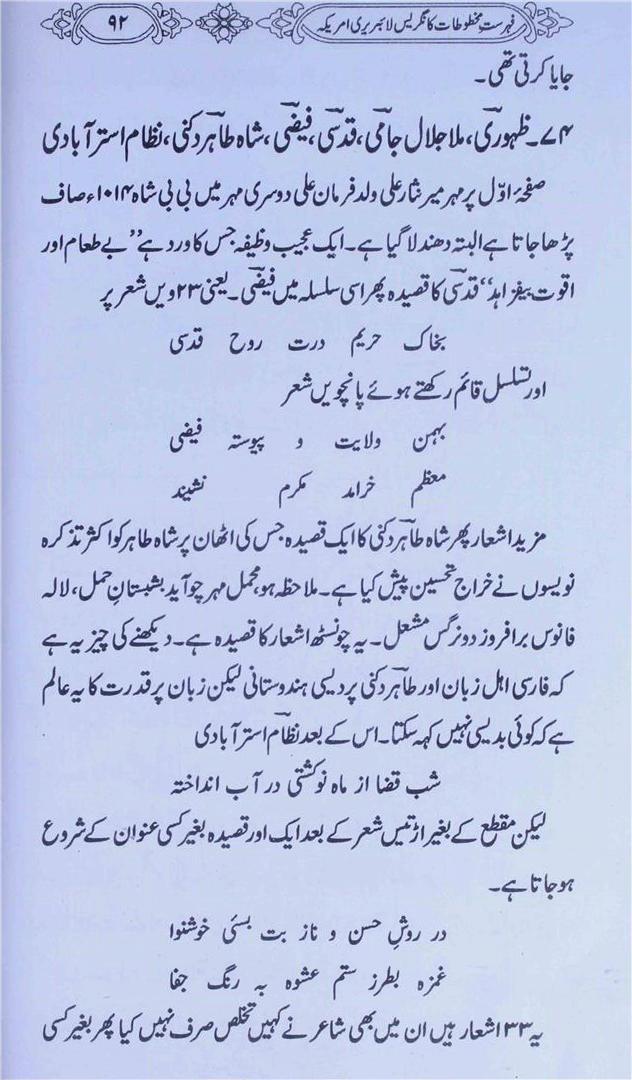 فہرست مخطوطات کانگریس لائبریری امریکہ
۹۲
جایا کرتی تھی۔
۷۴۔ ظہوری، ملا جلال جامی، قدسی، فیضی، شاہ طاہر دکنی، نظام استرآبادی
صفحۂ اوّل پر مہر میر نثار علی ولد فرمان علی دوسری مہر میں بی بی شاہ ۱۰۱۴ء صاف
پڑھا جاتا ہے البتہ دھندلا گیا ہے۔ ایک عجیب وظیفہ جس کا ورد ہے ”بے طعام اور
اقوت بیفزاہد“ قدسی کا قصیدہ پھر اسی سلسلہ میں فیضی۔ یعنی ۲۳ ویں شعر پر
بخاک حریم درت روح قدسی
اور تسلسل قائم رکھتے ہوئے پانچویں شعر
بہمن ولایت و پیوستہ فیضی
معظم خرامد مکرم نشیند
مزید اشعار پھر شاہ طاہر دکنی کا ایک قصیدہ جس کی اٹھان پر شاہ طاہر کو اکثر تذکرہ
نویسوں نے خراج تحسین پیش کیا ہے۔ ملاحظہ ہو، محمل مہر چو آید بشبستانِ حمل، لالہ
فانوس برافروز دو نرگس مشعل۔ یہ چونسٹھ اشعار کا قصیدہ ہے۔ دیکھنے کی چیز یہ ہے
کہ فارسی اہل زبان اور طاہر دکنی پردیسی ہندوستانی لیکن زبان پر قدرت کا یہ عالم
ہے کہ کوئی بدیسی نہیں کہہ سکتا۔ اس کے بعد نظام استرآبادی
شب قضا از ماہ نو کشتی در آب انداختہ
لیکن مقطع کے بغیر اڑتیس شعر کے بعد ایک اور قصیدہ بغیر کسی عنوان کے شروع
ہو جاتا ہے۔
در روشِ حسن و ناز بت بسئی خوشنوا
غمزہ بطرز ستم عشوہ بہ رنگ جفا
یہ ۳۳ اشعار ہیں ان میں بھی شاعر نے کہیں تخلص صرف نہیں کیا پھر بغیر کسی